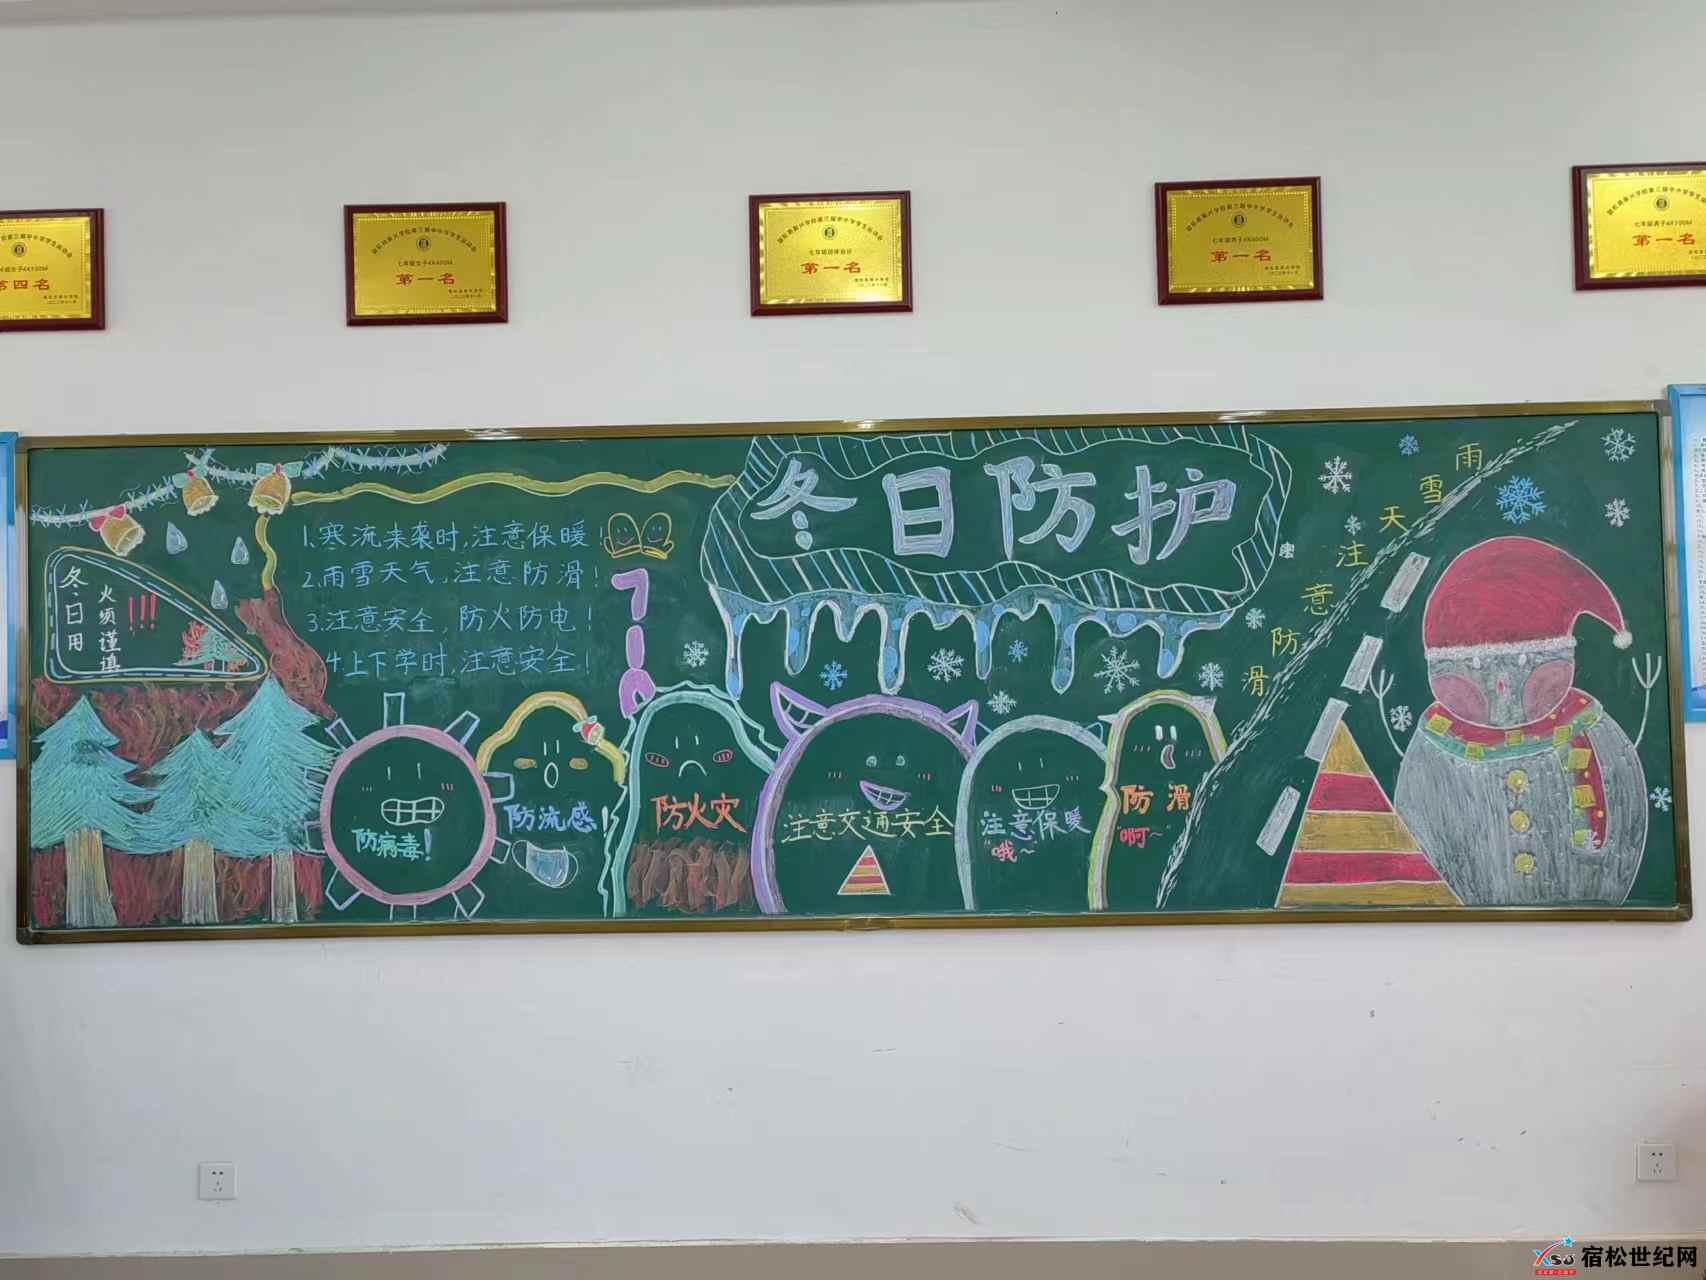 第四名
七年级女子4X400M
第一名
七年级团体总分
第一名
七年级男子4X400M
第一名
七年级男子4X100M
第一名
冬日防护
冬日用
火须谨慎
!!!
1.寒流来袭时,注意保暖!
2.雨雪天气,注意防滑!
3.注意安全,防火防电!
4.上下学时,注意安全!
雨雪天注意防滑
防病毒!
防流感!
防火灾
注意交通安全
注意保暖
"哦~"
防滑
"啊~"
宿松世纪网